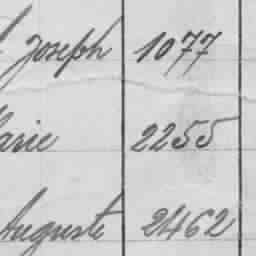 Joseph 1077
Marie 2255
Auguste 2462